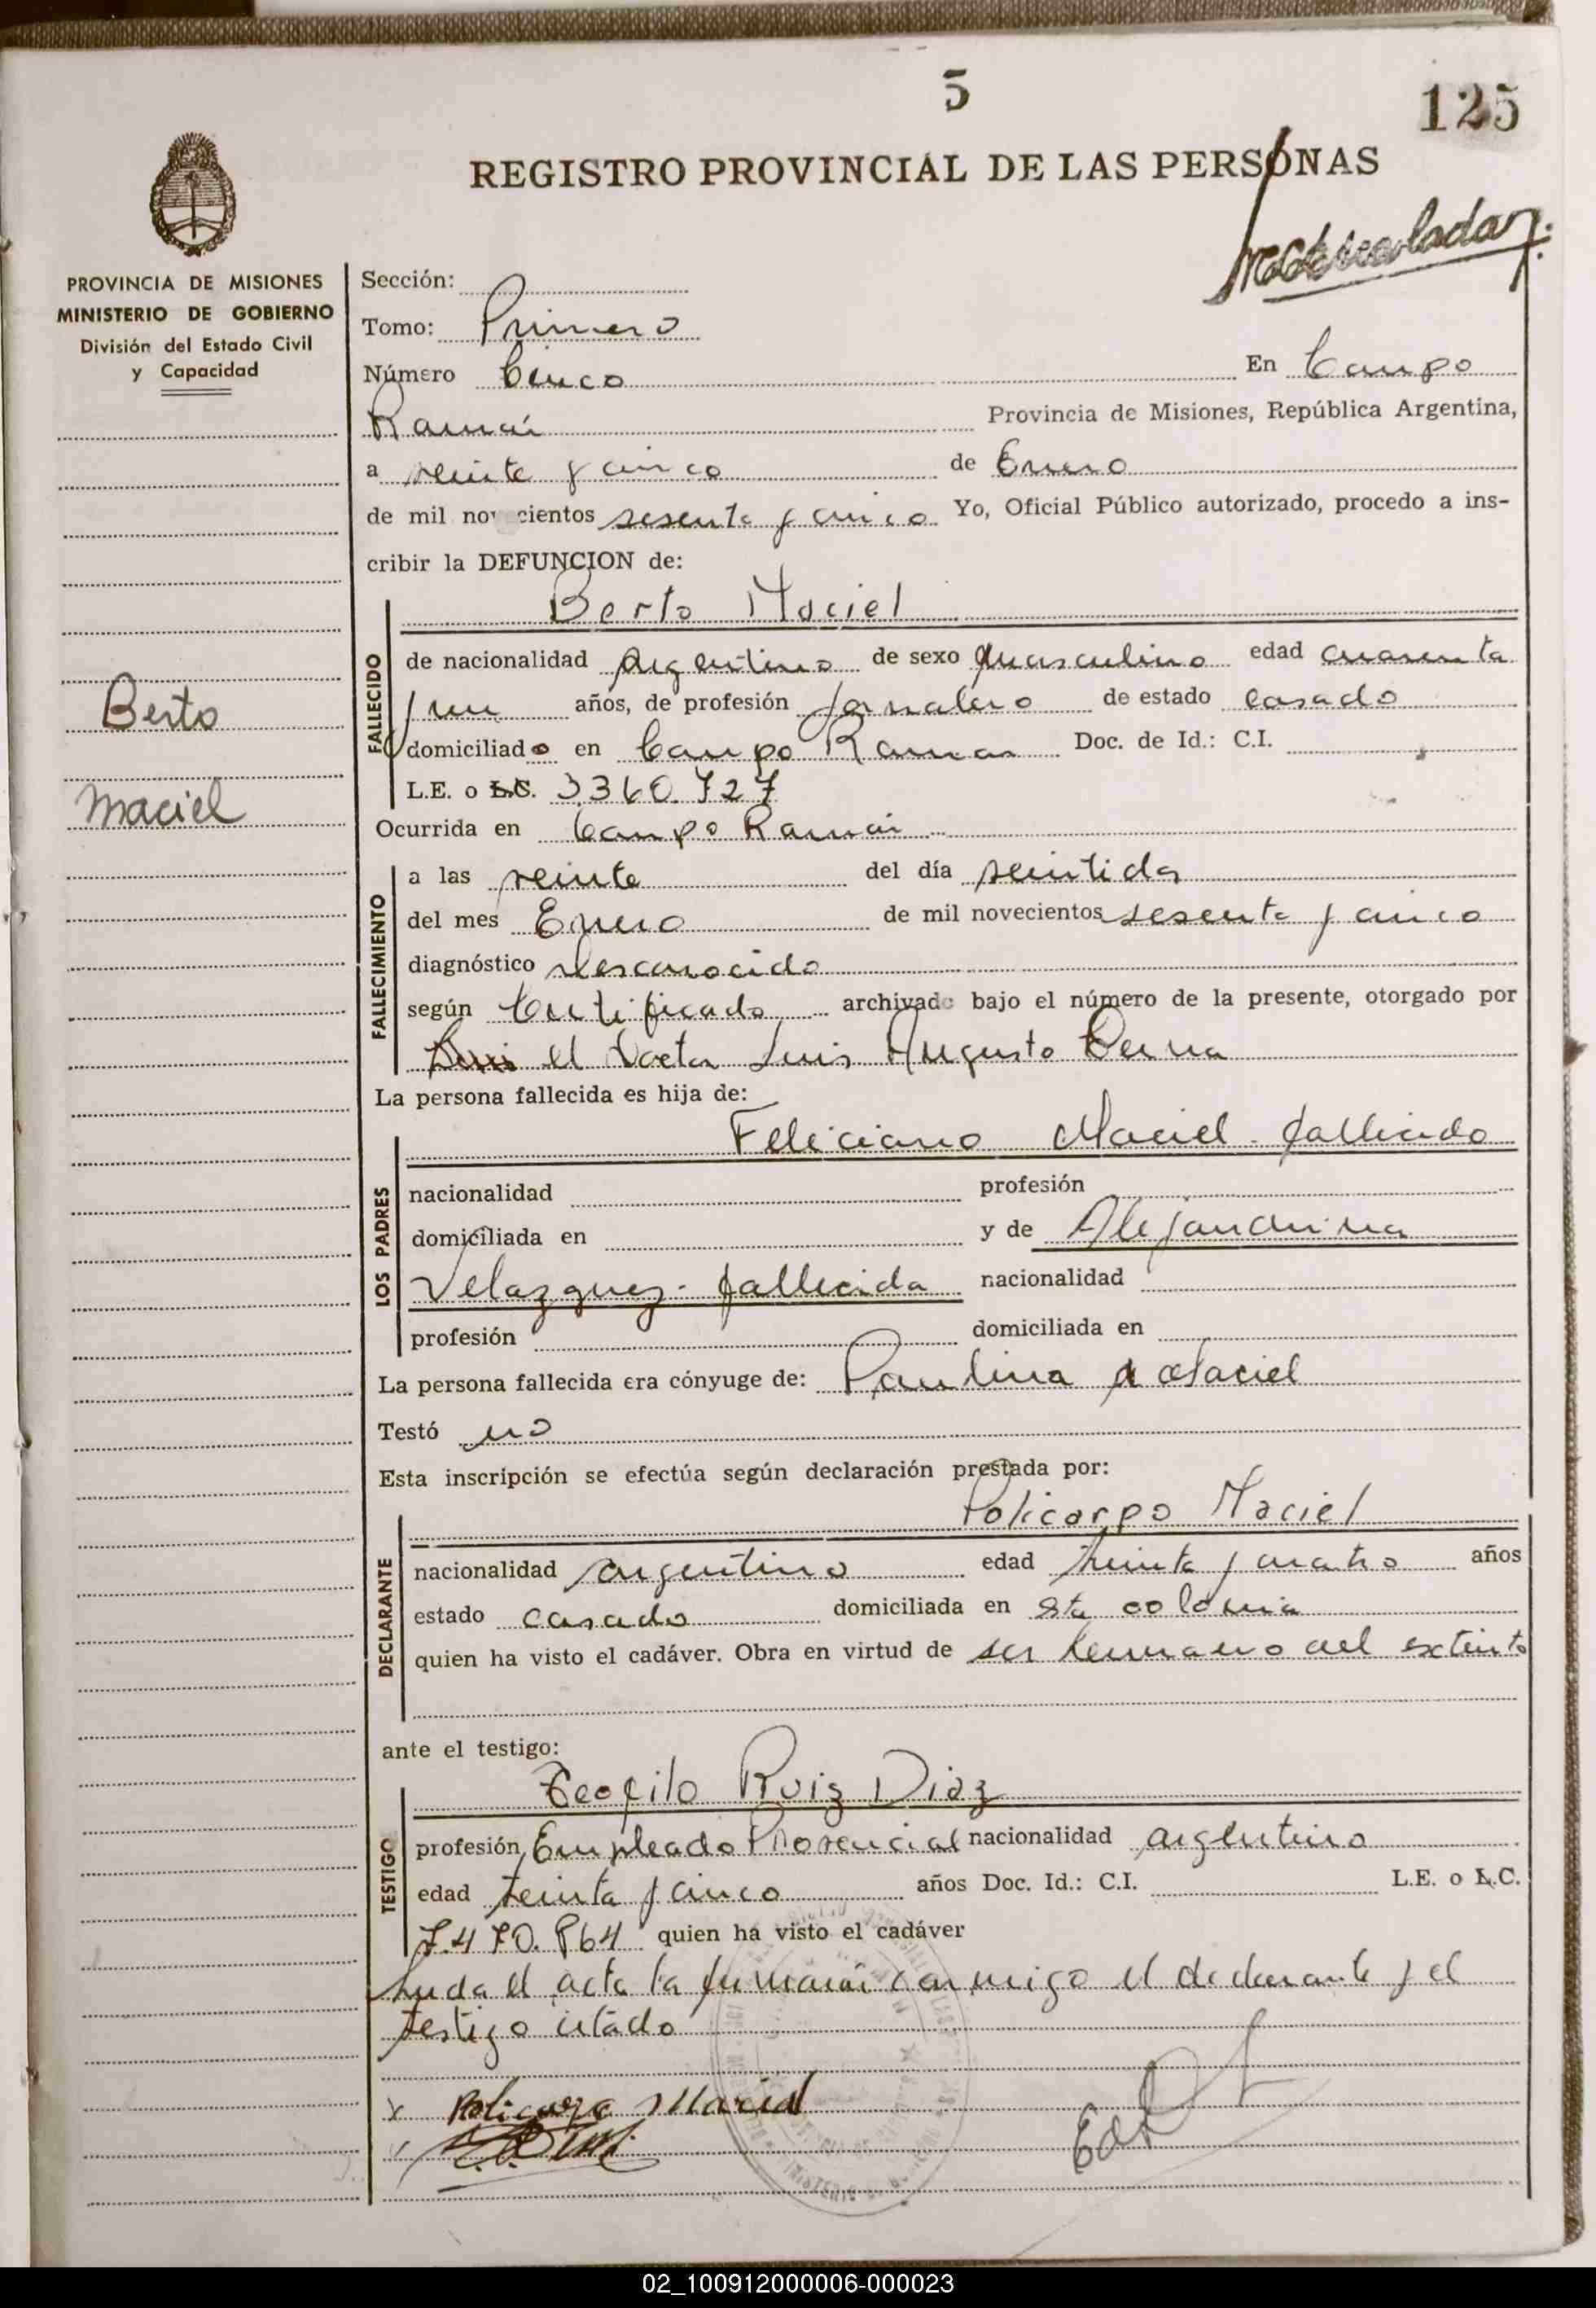 5
125
REGISTRO PROVINCIAL DE LAS PERSONAS
PROVINCIA DE MISIONES
MINISTERIO DE GOBIERNO
División del Estado Civil
y Capacidad
Berto
Maciel
Sección:
Tomo: Primero
Número Cinco En Campo
Ramón Provincia de Misiones, República Argentina,
a veinte y cinco de Enero
de mil novecientos sesenta y cinco Yo, Oficial Público autorizado, procedo a ins-
cribir la DEFUNCION de:
Berto Maciel
FALLECIDO
de nacionalidad Argentino de sexo Masculino edad cuarenta
y un años, de profesión Jornalero de estado casado
domiciliado en Campo Ramon Doc. de Id.: C.I.
L.E. o L.C. 3.360.727
Ocurrida en Campo Ramón
FALLECIMIENTO
a las veinte del día veintidos
del mes Enero de mil novecientos sesenta y cinco
diagnóstico desconocido
según Certificado archivado bajo el número de la presente, otorgado por
el Doctor Luis Augusto
La persona fallecida es hija de:
Feliciano Maciel - fallecido
LOS PADRES
nacionalidad profesión
domiciliada en y de Alejandrina
Velazquez - fallecida nacionalidad
profesión domiciliada en
La persona fallecida era cónyuge de: Paulina Maciel
Testó no
Esta inscripción se efectúa según declaración prestada por:
Policarpo Maciel
DECLARANTE
nacionalidad argentino edad treinta y cuatro años
estado casado domiciliada en esta colonia
quien ha visto el cadáver. Obra en virtud de ser hermano del extinto
ante el testigo:
Teofilo Ruiz Diaz
TESTIGO
profesión Empleado Provencial nacionalidad argentino
edad treinta y cinco años Doc. Id.: C.I. L.E. o L.C.
7.470.864 quien ha visto el cadáver
Leida el acta la firmarón conmigo el declarante y el
testigo citado
x Policarpo Maciel
02_100912000006-000023